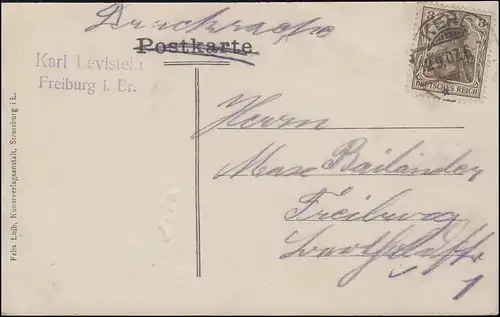 Drucksache
Postkarte
Karl Levistein
Freiburg i. Br.
3 3
DEUTSCHES REICH
Herrn
Max Bailander
Freiburg
1
Felix Luib, Kunstverlagsanstalt, Strassburg i. E.